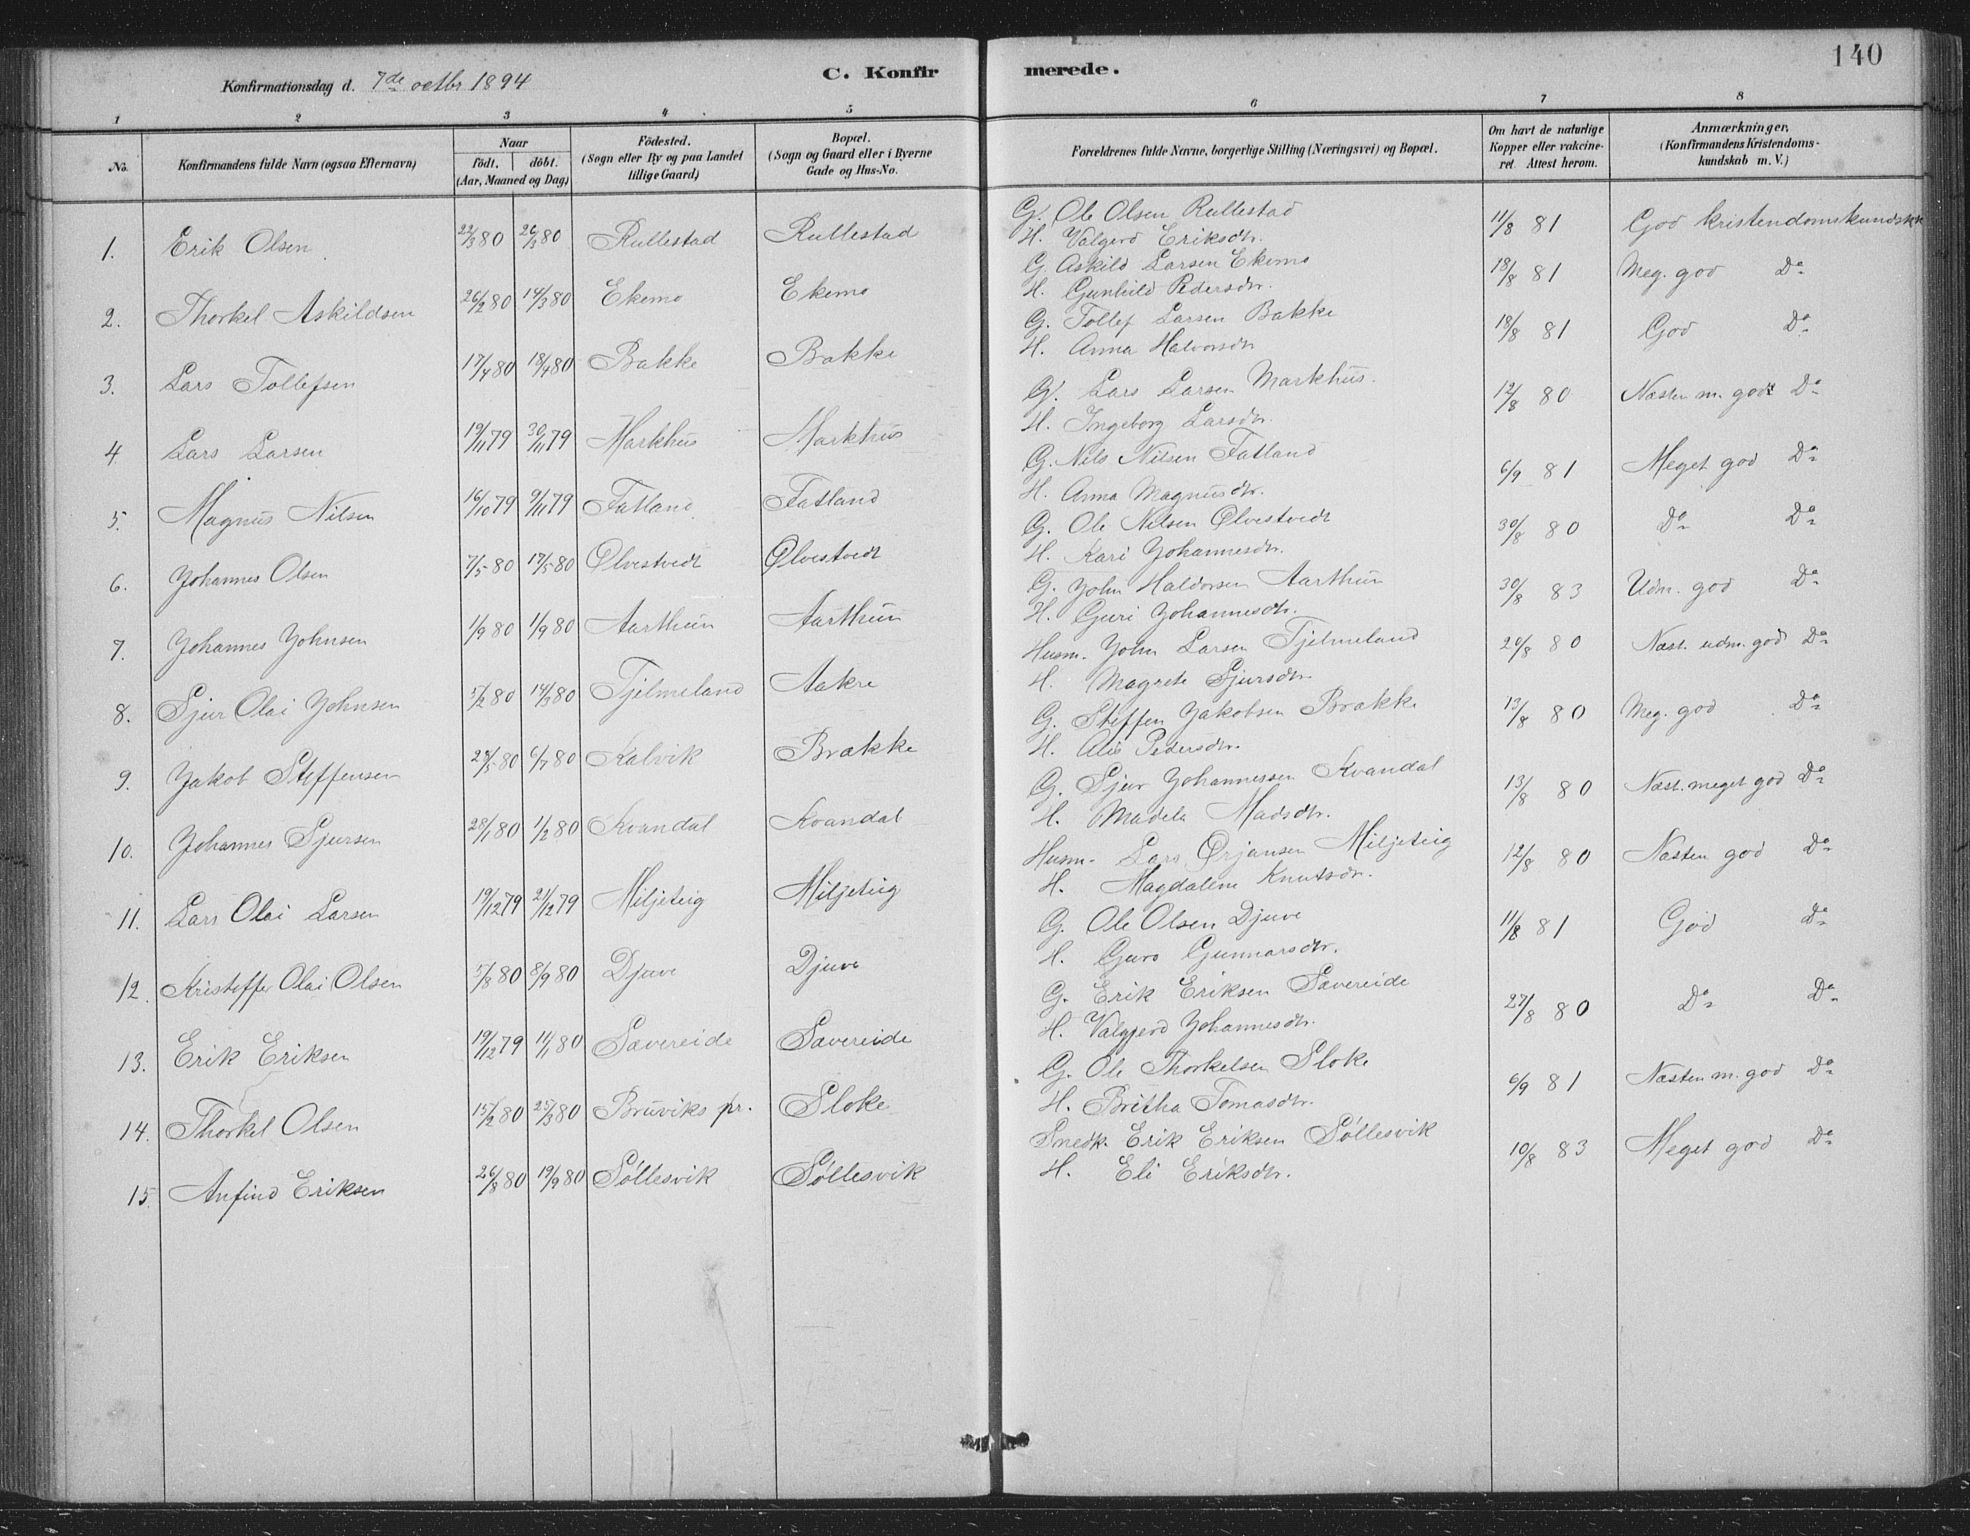 140
Konfirmationsdag d. 7de octbr 1894
C. Konfirmerede.
1 2 3 4 5 6 7 8
No. Konfirmandens fulde Navn (ogsaa Efternavn) Naar födt. döbt. (Aar, Maaned og Dag) Födested. (Sogn eller By og paa Landet tillige Gaard) Bopæl. (Sogn og Gaard eller i Byerne Gade og Hus-No. Forældrenes fulde Navne, borgerlige Stilling (Næringsvei) og Bopæl. Om havt de naturlige Kopper eller vakcineret. Attest herom. Anmærkninger. (Konfirmandens Kristendomskundskab m. V.)
1. Erik Olsen 22/3 80 26/3 80 Rullestad Rullestad G. Ole Olsen Rullestad 11/8 81 God kristendomskundsk
H. Valgerd Eriksdtr.
2. Thorkel Askildsen 26/2 80 14/3 80 Ekemo Ekemo G. Askild Larsen Ekemo 18/8 81 Meg. god Do
H. Gunhild Pedersdtr.
3. Lars Tollefsen 17/4 80 18/4 80 Bakke Bakke G. Tollef Larsen Bakke 18/8 81 God Do
H. Anna Halvorsdtr
4 Lars Larsen 19/11 79 30/11 79 Markhus Markhus G. Lars Larsen Markhus. 12/8 80 Næsten m. godt Do
H. Ingeborg Larsdtr.
5. Magnus Nilsen 16/10 79 9/11 79 Fatland Fatland G. Nils Nilsen Fatland 6/9 81 Meget god Do
H. Anna Magnusdtr.
6. Johannes Olsen 7/5 80 17/5 80 Ølvestvedt Ølvestvedt G. Ole Nilsen Ølvestvedt 30/8 80 Do Do
H. Kari Johannesdtr.
7. Johannes Johnsen 1/9 80 1/9 80 Aarthun Aarthun G. John Haldorsen Aarthun 30/8 83 Udm. god Do
H. Guri Johannesdtr.
8. Sjur Olai Johnsen 5/2 80 14/3 80 Tjelmeland Aakre Husm. John Larsen Tjelmeland 20/8 80 Næst. udm. god Do
H. Magrete Sjursdtr.
9. Jakob Steffensen 25/5 80 6/7 80 Kalvik Brakke G. Steffen Jakobsen Brakke 13/8 80 Meg. god Do
H. Alis Pedersdtr.
10. Johannes Sjursen 28/1 80 1/2 80 Kvandal Kvandal G. Sjur Johannessen Kvandal 13/8 80 Næst. meget god Do
H. Madela Madsdtr.
11. Lars Olai Larsen 19/12 79 21/12 79 Miljeteig Miljeteig Husm. Lars Ørjansen Miljeteig 12/8 80 Næsten god Do
H. Magdalene Knutsdtr.
12. Kristoffer Olai Olsen 5/8 80 8/9 80 Djuve Djuve G. Ole Olsen Djuve 11/8 81 God Do
H. Guro Gunnarsdtr.
13. Erik Eriksen 19/12 79 11/1 80 Sævereide Sævereide G. Erik Eriksen Sævereide 27/8 80 Do Do
H. Valgjerd Johannesdtr.
14. Thorkel Olsen 15/2 80 25/3 80 Bruviks pr. Sloke G. Ole Thorkelsen Sloke 6/9 81 Næsten m. god Do
H. Britha Tomasdtr.
15 Anfind Eriksen 26/8 80 19/9 80 Søllesvik Søllesvik Snedk. Erik Eriksen Søllesvik 10/8 83 Meget god Do
H. Eli Eriksdtr.